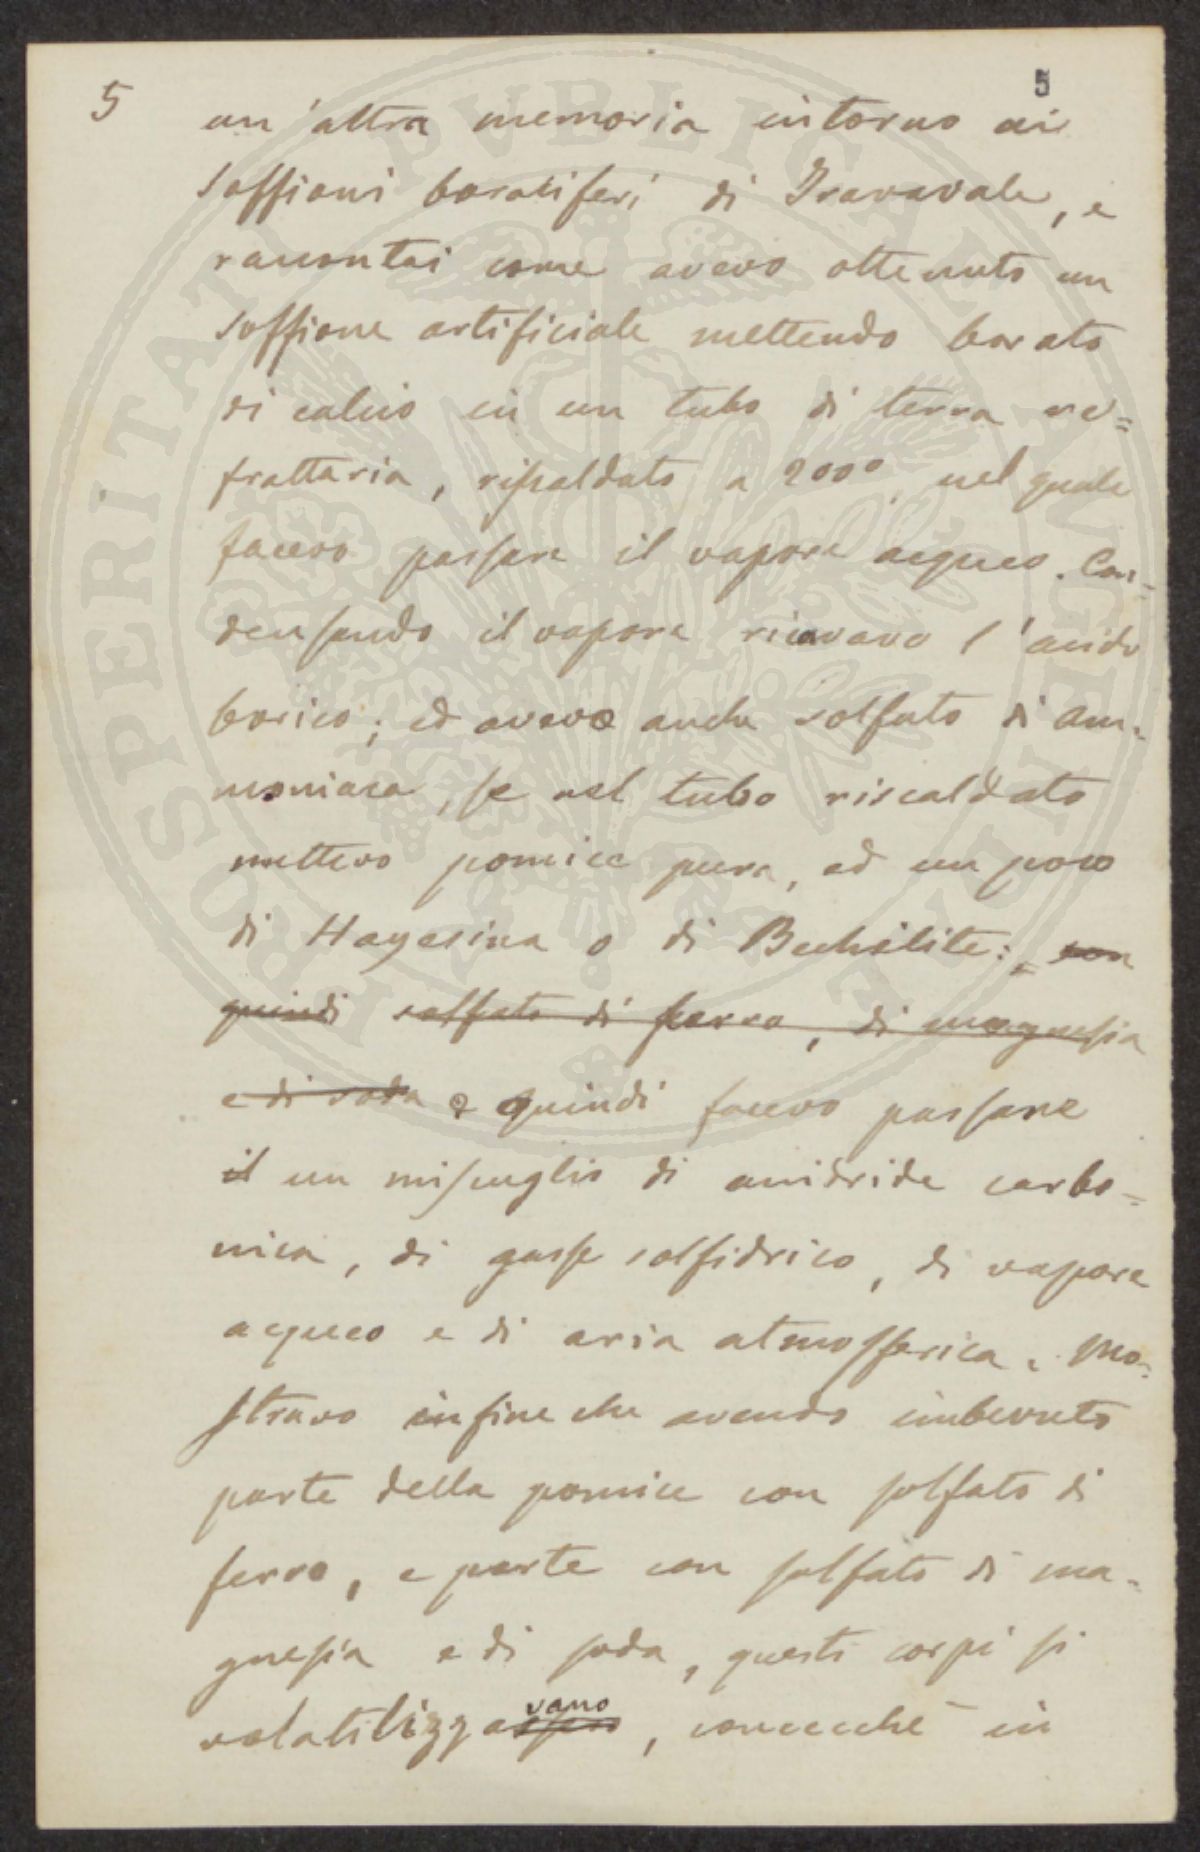 5 5
un'altra memoria intorno ai
soffioni boraciferi di Travavale, e
raccontai come avevo ottenuto un
soffione artificiale mettendo borato
di calcio in un tubo di terra re=
frattaria, riscaldato a 200°, nel quale
facevo passare il vapore acqueo. Con=
densando il vapore ricavavo l'acido
borico; ed avevo anche solfato di am=
moniaca, se nel tubo riscaldato
mettevo pomice pura, ed un poco
di Hayesina o di Bechilite: con
quindi solfato di ferro, di magnesia
e di soda e quindi facevo passare
il un miscuglio di anidride carbo=
nica, di gasse solfidrico, di vapore
acqueo e di aria atmosferica. Mo=
stravo infine che avendo imbevuto
parte della pomice con solfato di
ferro, e parte con solfato di ma=
gnesia e di soda, questi corpi si
volatilizzavano, comecchè in